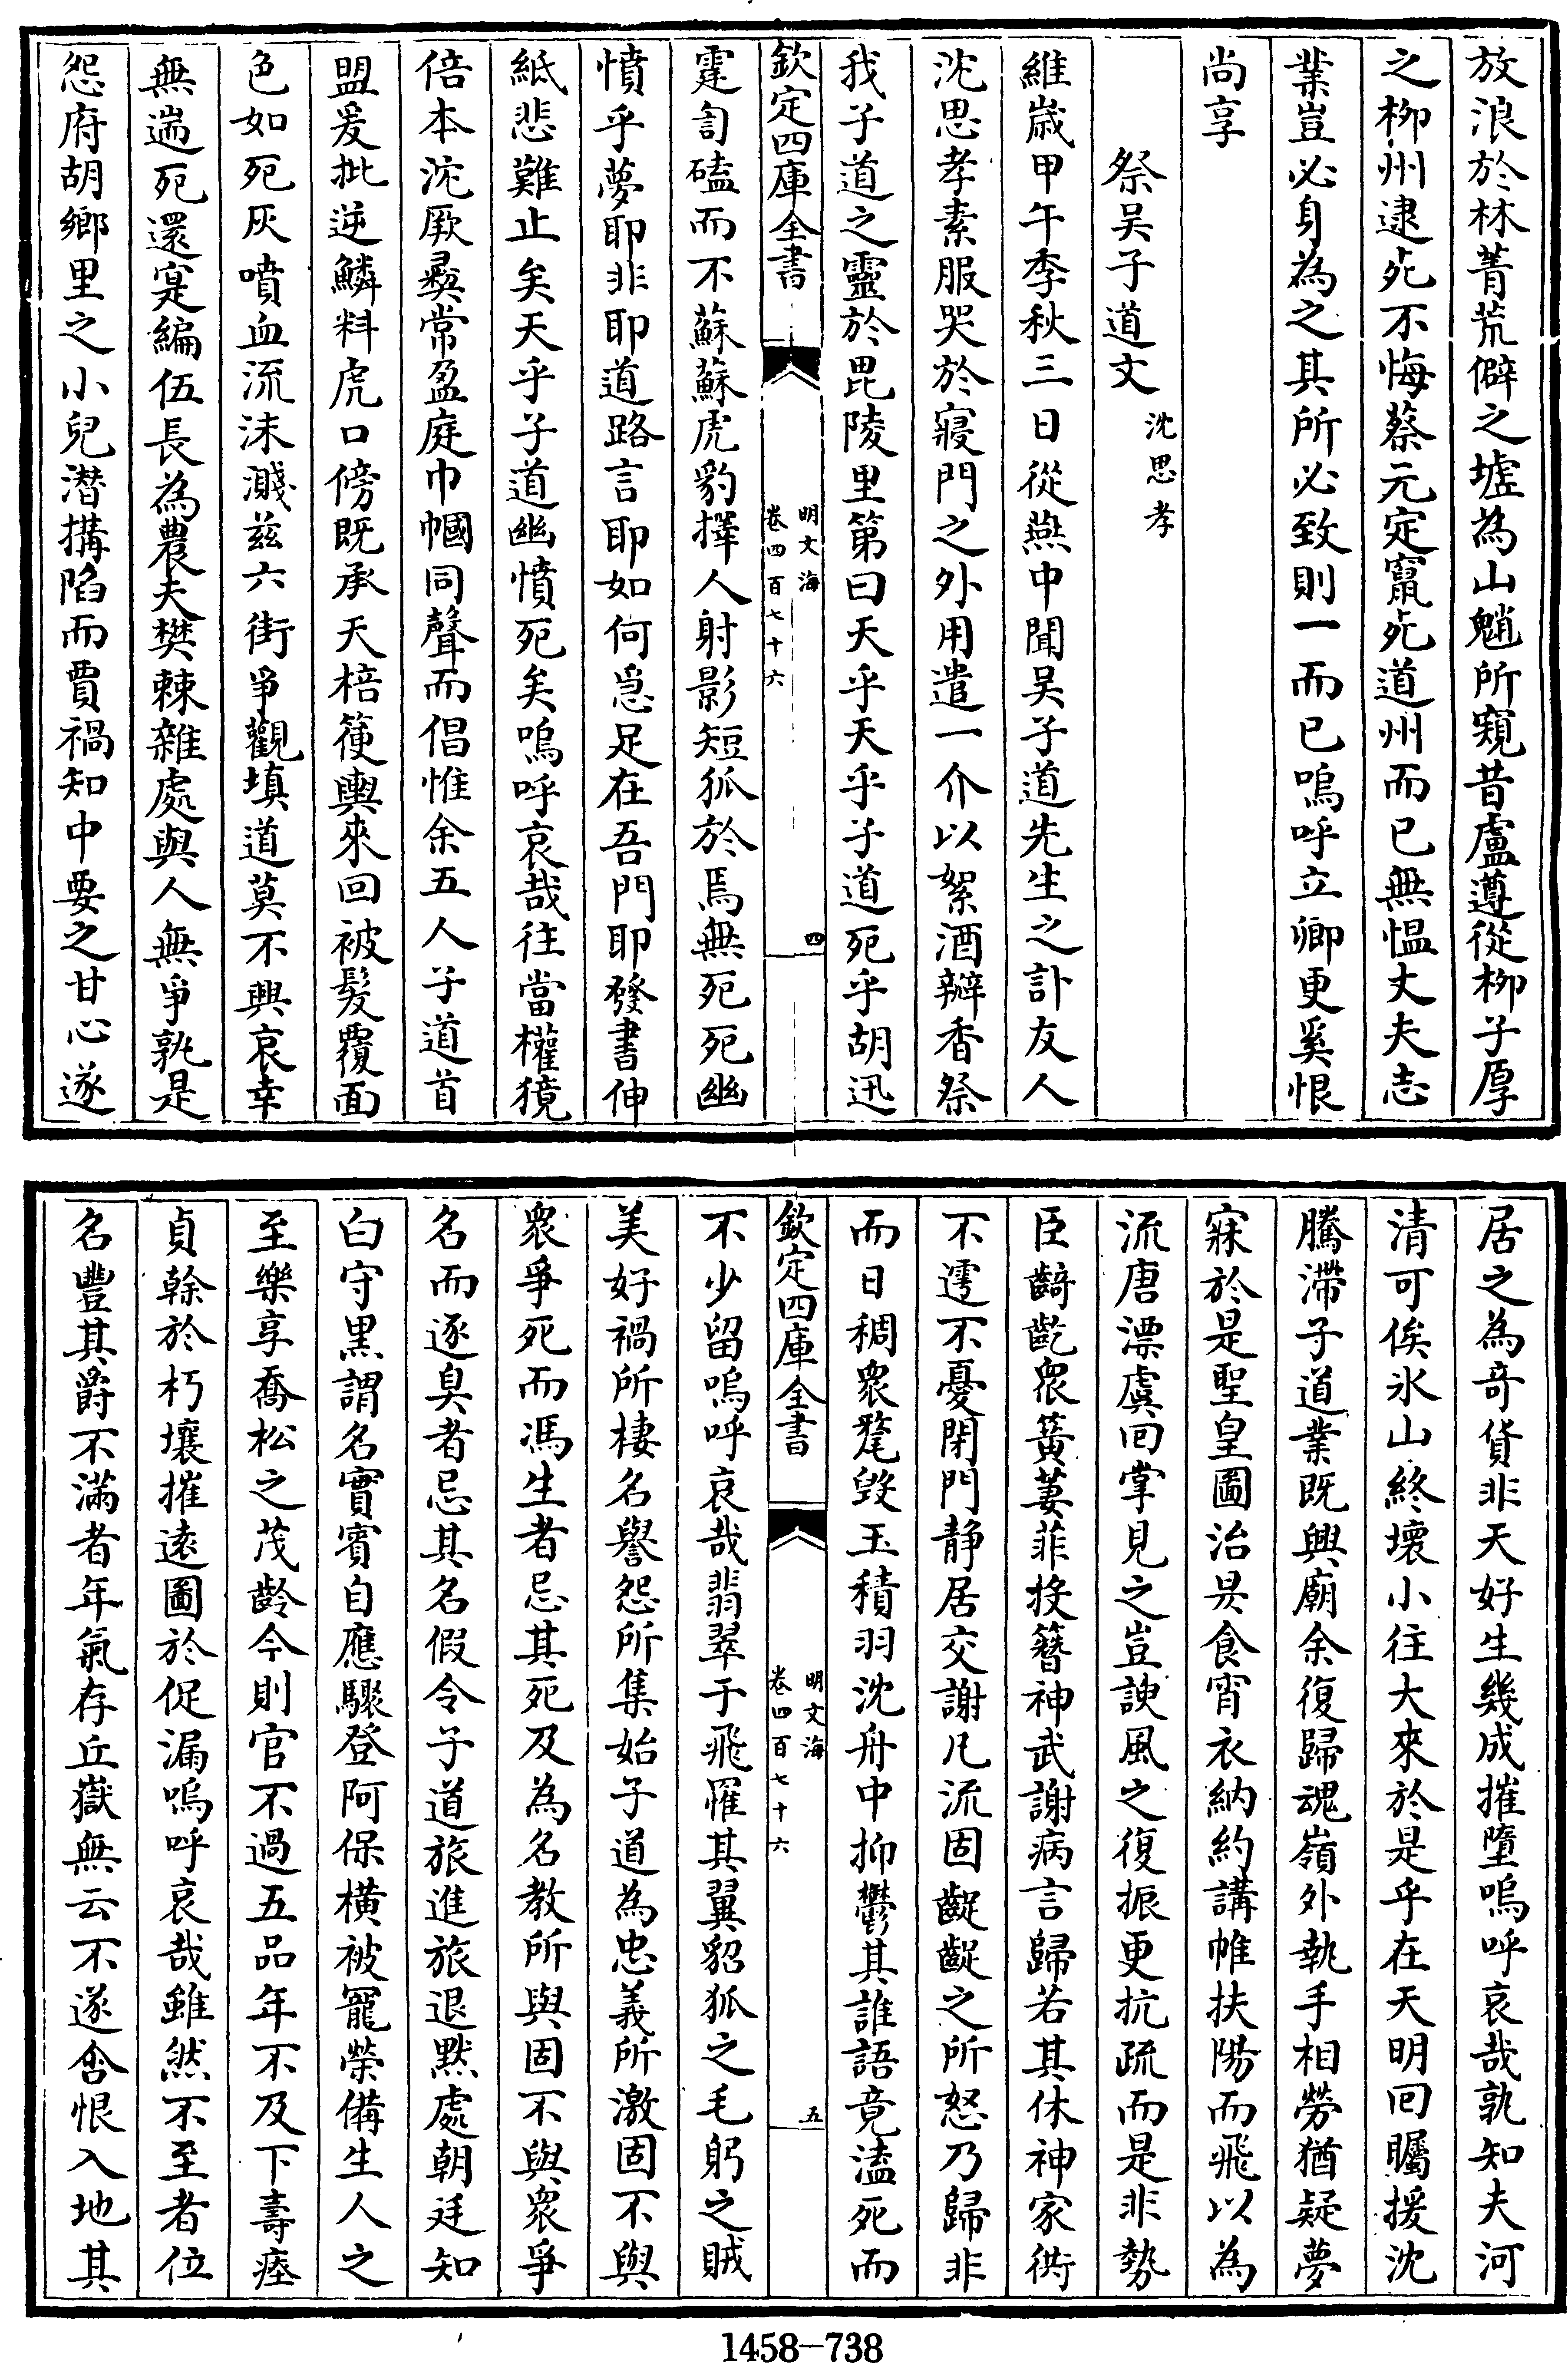 放浪於林菁荒僻之墟為山魈所窺昔盧遵從栁子厚
之栁州逮死不悔蔡元定竄死道州而已無愠丈夫志
業豈必身為之其所必致則一而已嗚呼立卿更奚恨
尚享
祭吴子道文 沈思孝
維歲甲午季秋三日從燕中聞吴子道先生之訃友人
沈思孝素服哭於寢門之外用遣一介以絮酒辦香祭
我子道之靈於毘陵里第曰天乎天乎子道死乎胡迅
霆訇磕而不蘇蘇虎豹擇人射影短狐於焉無死死幽
憤乎夢耶非耶道路言耶如何急足在吾門耶發書伸
紙悲難止矣天乎子道幽憤死矣嗚呼哀哉往當權獍
倍本沱厥彞常盈庭巾幗同聲而倡惟余五人子道首
盟爰批逆鱗料虎口傍既承天棓箯輿來回被髮覆面
色如死灰噴血流沫濺兹六街爭觀填道莫不興哀幸
無遄死還寔編伍長為農夫樊棘雜處與人無爭孰是
怨府胡鄉里之小兒潛搆陷而賈禍知中要之甘心遂
欽定四庫全書
明文海
卷四百七十六
四
居之為奇貨非天好生幾成摧墮嗚呼哀哉孰知夫河
清可俟氷山終壞小往大來於是乎在天明回矚援沈
騰滯子道業既興廟余復歸魂嶺外執手相勞猶疑夢
寐於是聖皇圖治昃食宵衣納約講帷扶陽而飛以為
流唐漂虞回掌見之豈諛風之復振更抗疏而是非勢
臣齮齕衆簧萋菲投簪神武謝病言歸若其休神家衖
不遻不憂閉門靜居交謝凡流固齪齪之所怒乃歸非
而日稠衆毳毀玉積羽沈舟中抑鬱其誰語竟溘死而
不少留嗚呼哀哉翡翠于飛罹其翼貂狐之毛躬之賊
美好禍所棲名譽怨所集始子道為忠義所激固不與
衆爭死而馮生者忌其死及為名教所與固不與衆爭
名而逐臭者忌其名假令子道旅進旅退黙處朝廷知
白守黒謂名實賓自應驟登阿保橫被寵榮備生人之
至樂享喬松之茂齡今則官不過五品年不及下壽瘞
貞榦於朽壤摧遠圖於促漏嗚呼哀哉雖然不至者位
名豐其爵不滿者年氣存丘嶽無云不遂含恨入地其
欽定四庫全書
明文海
卷四百七十六
五
1458-738